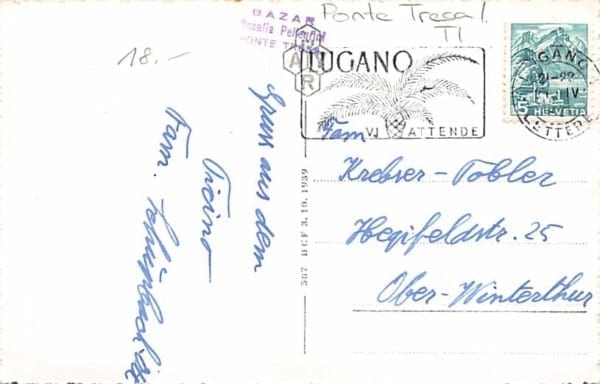 BAZAR
Rosalia Pellegrini
PONTE TRESA
Ponte Tresa /
TI
18.-
LUGANO
VI ATTENDE
LUGANO
LETTERE
5 HELVETIA
Gruss aus dem
Ticino
Fam.
587 DCF 3.10.1939
Fam
Krebser-Tobler
Hegifeldstr. 25
Ober-Winterthur